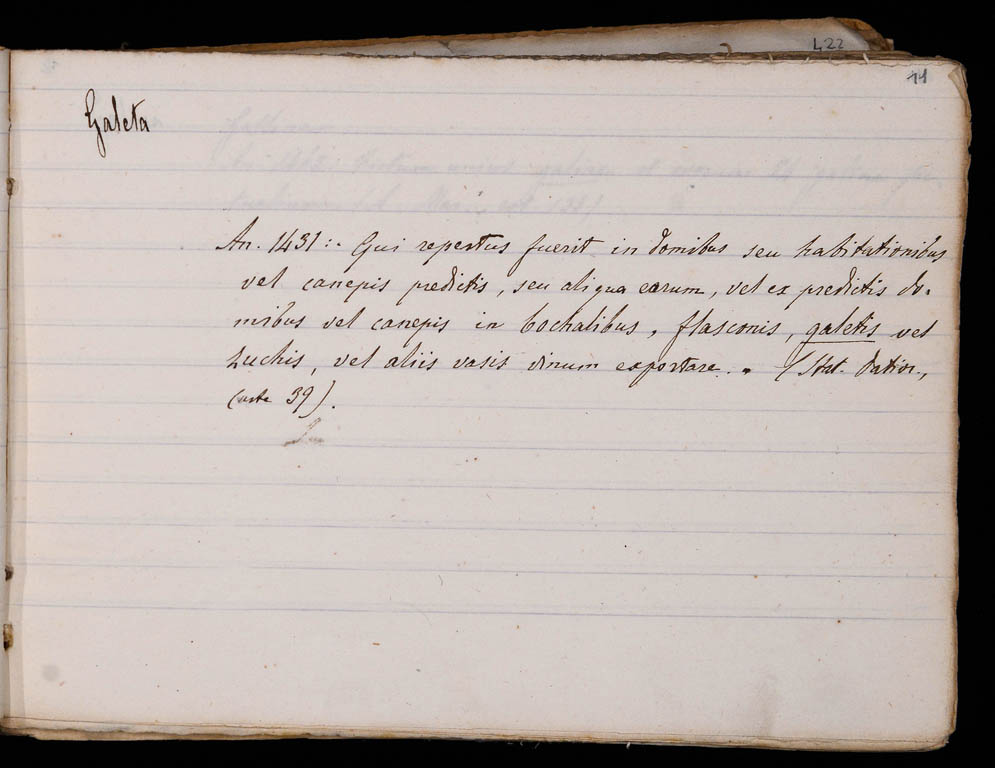 422
11
Galeta
An. 1431:. Qui repertus fuerit in domibus seu habitationibus
vel canepis predictis, seu aliqua earum, vel ex predictis do-
mibus vel canepis in bochalibus, flasconis, galetis vel
zuchis, vel aliis vasis vinum exportare. . (Stat. datior.,
carte 39).